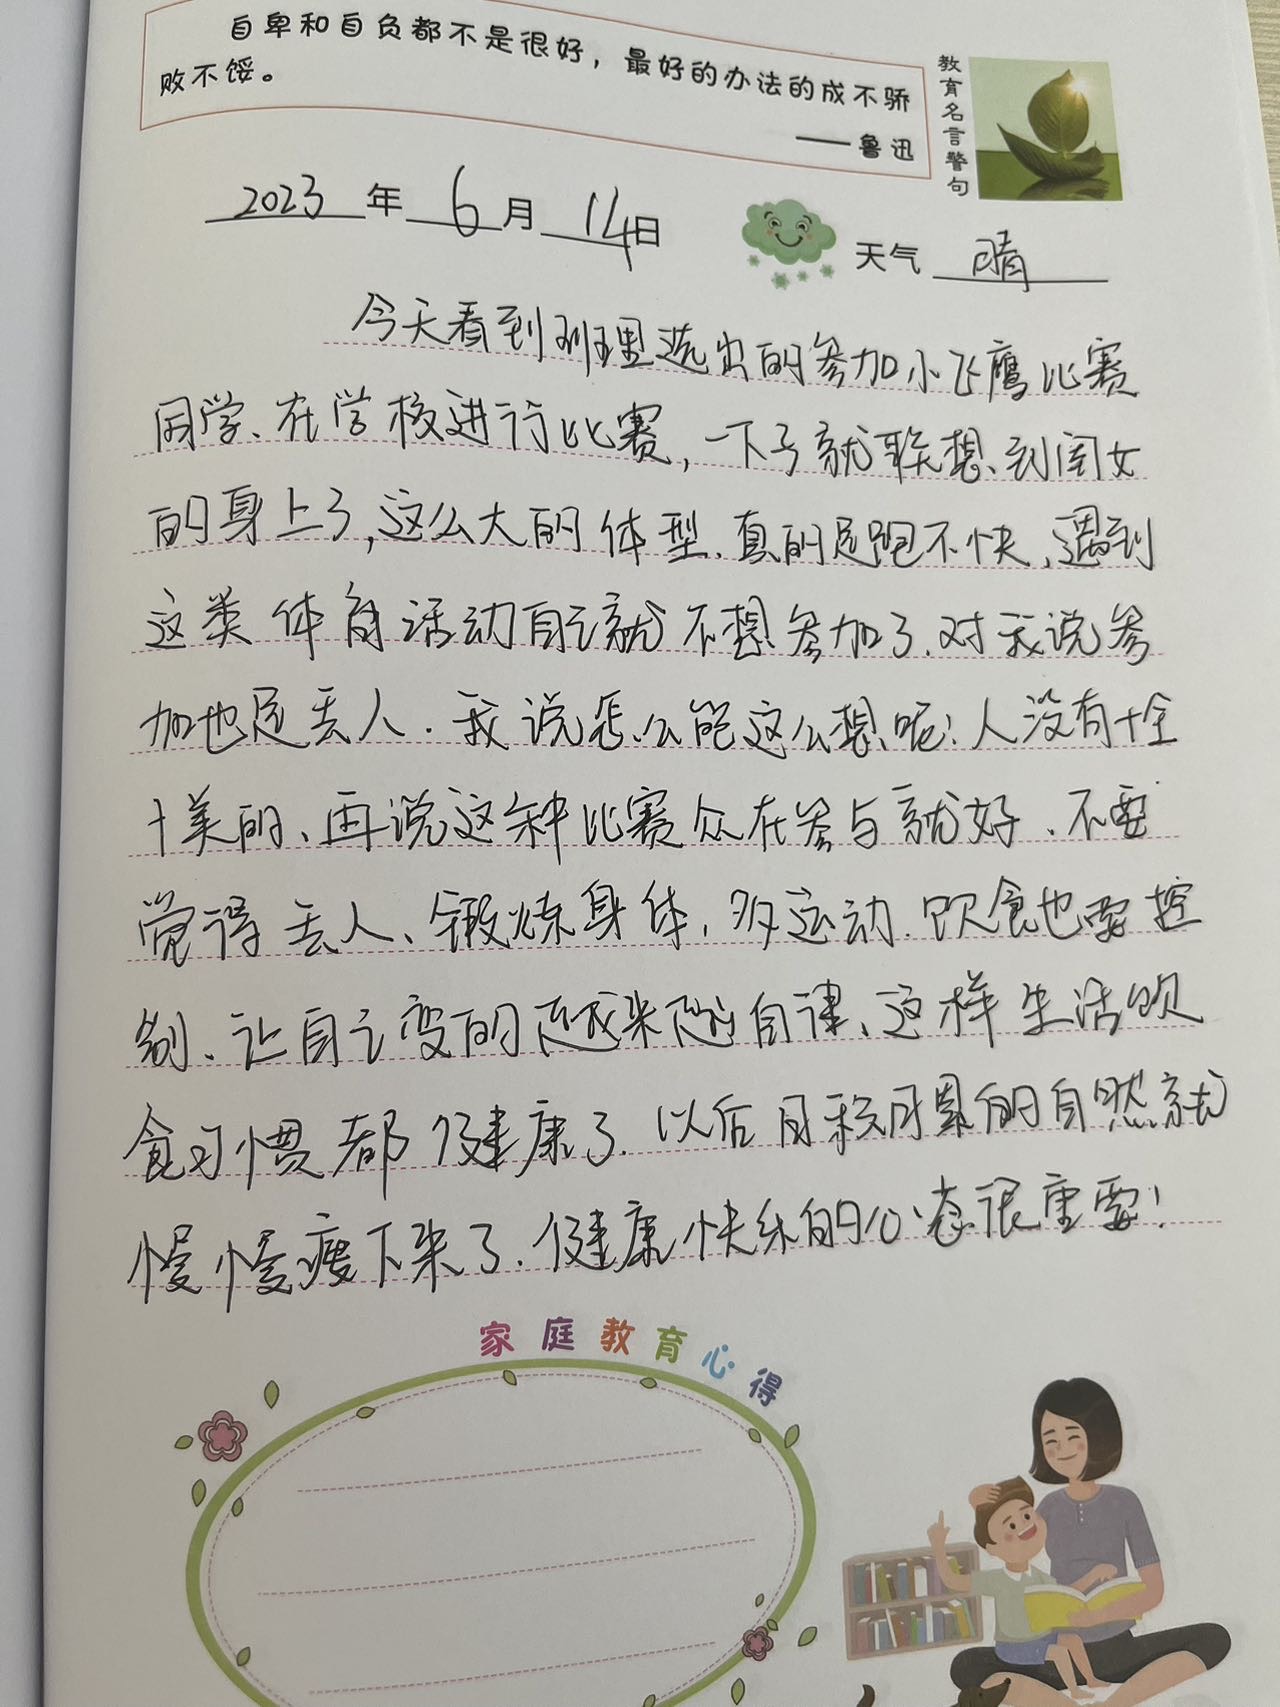 自卑和自负都不是很好，最好的办法的成不骄
败不馁。
——鲁迅
教育名言警句
2023年6月14日
天气 晴
今天看到班里选出的参加小飞鹰比赛
同学、在学校进行比赛，一下子就联想到闺女
的身上了，这么大的体型、真的是跑不快，遇到
这类体育活动自己就不想参加了、对我说参
加也是丢人．我说怎么能这么想呢！人没有十全
十美的、再说这种比赛众在参与就好、不要
觉得丢人、锻炼身体，多运动．饮食也要控
制、让自己变的越来越自律、这样生活饮
食习惯都健康了．以后日积月累的自然就
慢慢瘦下来了．健康快乐的心态很重要！
家庭教育心得